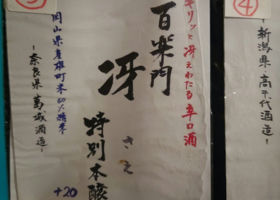 ③
キリッと冴えわたる辛口酒
百楽門
冴
さえ
特別本醸
岡山県産雄町米60%精米
-奈良県 葛城酒造-
+20
④
-新潟県 高千代酒造-